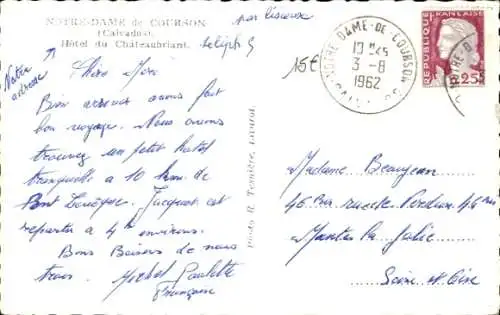 NOTRE-DAME de COURSON
(Calvados)
Hôtel du Châteaubriant.
par Lisieux
téléph 9
Notre
adresse
Chère Mère
Bien arrivés avons fait
bon voyage. Nous avons
trouvez un petit hotel
tranquille a 10 km. de
Pont Lévêque. Jacques est
reparti a 4h environs.
Bons Baisers de nous
trois. Michel Paulette
Françoise
Photo R. Tennière,
15€
NOTRE-DAME-DE-COURSON
3 -8
1962
REPUBLIQUE FRANÇAISE
0,25
Madame Beaujean
46 Bis
Mantes la Jolie
Seine et Oise